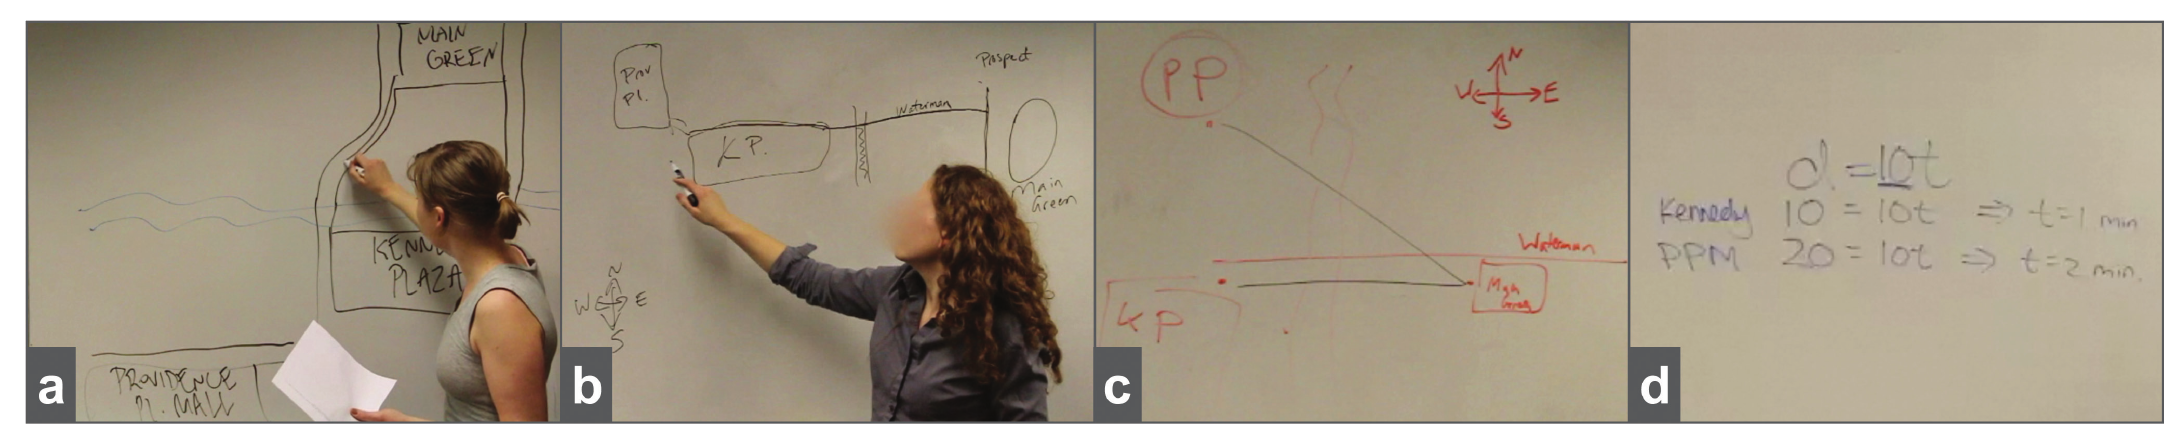 MAIN
GREEN
KENN
PLAZA
PROVIDENCE
PL. MALL
a
Prov
Pl.
K P.
Waterman
Prospect
Main
Green
N
W E
S
b
PP
N
W E
S
Waterman
Main
Green
KP
c
d = 10t
Kennedy 10 = 10t ⇒ t=1 min
PPM 20 = 10t ⇒ t=2 min.
d